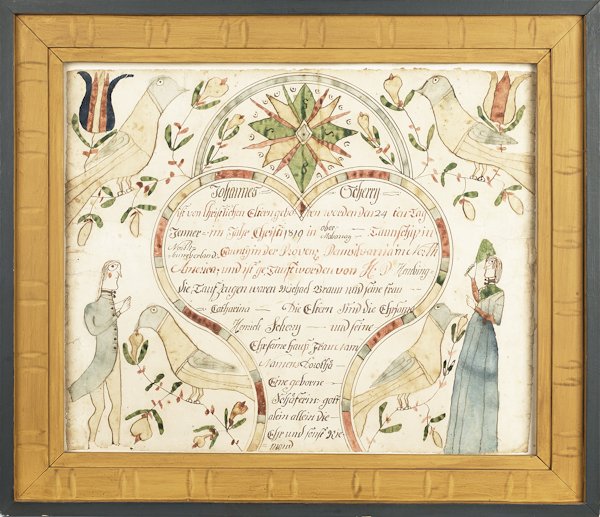 Johannes Scherry
ist von Christlichen Eltern gebohren worden den 24 ten Tag
Jenner im Jahr Christi 1819 in ober Mahanoy Taunschip in
Northumberland County in der Provenz Pensilvania in North
America und ist getauft worden von H Pf
die Tauf Zeugen waren Michael Braun und seine frau
Catharina Die Eltern Sind die Ehrsame
Henrich Schery und seine
Ehrsame hauss Frau
Namens Dorotha
Eine geborne
Schäferin gott
allein die
Ehr und sonst Nie
mand